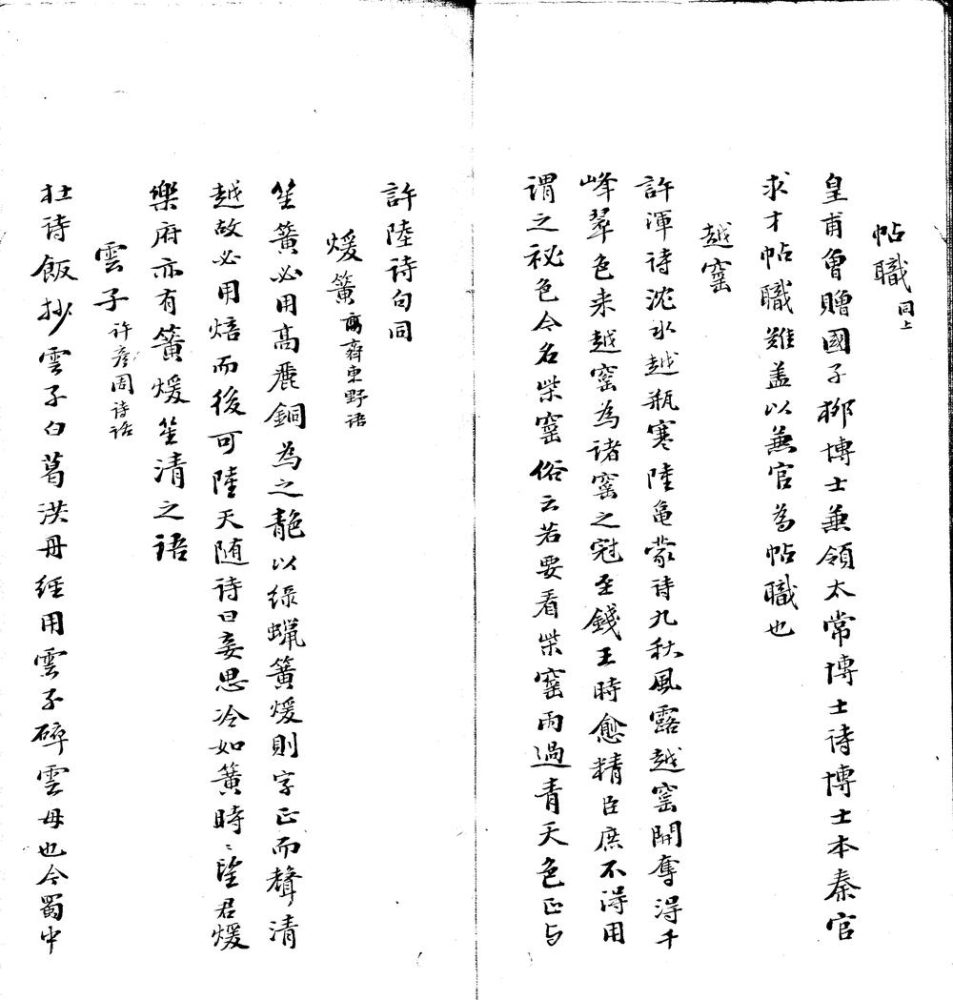 帖職 同上
皇甫曾贈國子栁博士兼領太常博士诗博士本秦官
求才帖職難盖以兼官為帖職也
越窑
許渾诗沈水越瓶寒陸龟蒙诗九秋風露越窑開奪得千
峰翠色来越窑為诸窑之冠至錢王時愈精臣庶不得用
谓之祕色今名柴窑俗云若要看柴窑雨過青天色正与
許陸诗句同
煖簧 齊東野语
笙簧必用高麗銅為之靘以绿蝋簧煖則字正而聲清
越故必用焙而後可陸天随诗曰妾思冷如簧時〻望君煖
樂府亦有簧煖笙清之语
雲子 许彦周诗话
杜诗飯抄雲子白葛洪丹经用雲子碎雲母也今蜀中